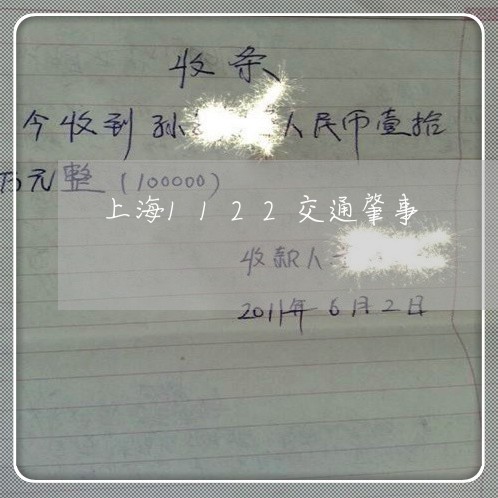 收条
今收到孙 人民币壹拾
万元整(100000)
上海1122交通肇事
收款人
2011年6月2日